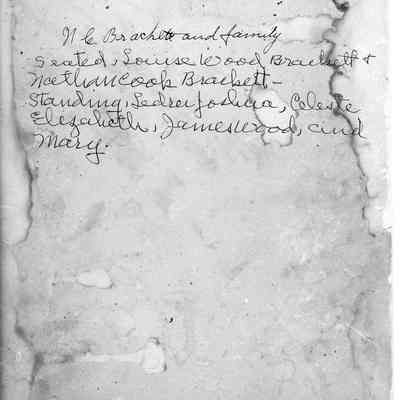 N C Brackett and family
Seated, Louise Wood Brackett &
Nathan Cook Brackett -
Standing, Ledru Joshua, Celeste
Elizabeth, James Wood, and
Mary.